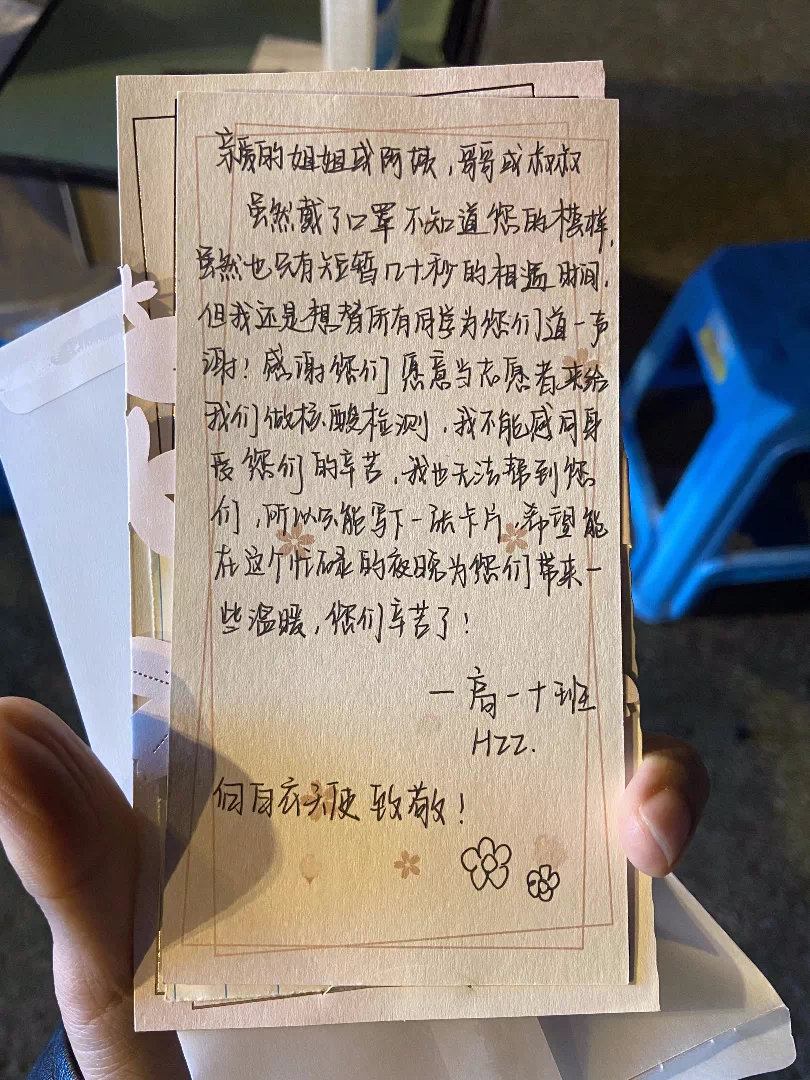 亲爱的姐姐或阿姨，哥哥或叔叔
虽然戴了口罩不知道您的模样，
虽然也只有短暂几十秒的相遇时间，
但我还是想替所有同学为您们道一声
谢！感谢您们愿意当志愿者来给
我们做核酸检测，我不能感同身
受您们的辛苦，我也无法帮到您
们，所以只能写下一张卡片，希望能
在这个忙碌的夜晚为您们带来一
些温暖，您们辛苦了！
一高一十班
HZZ.
向白衣天使致敬！